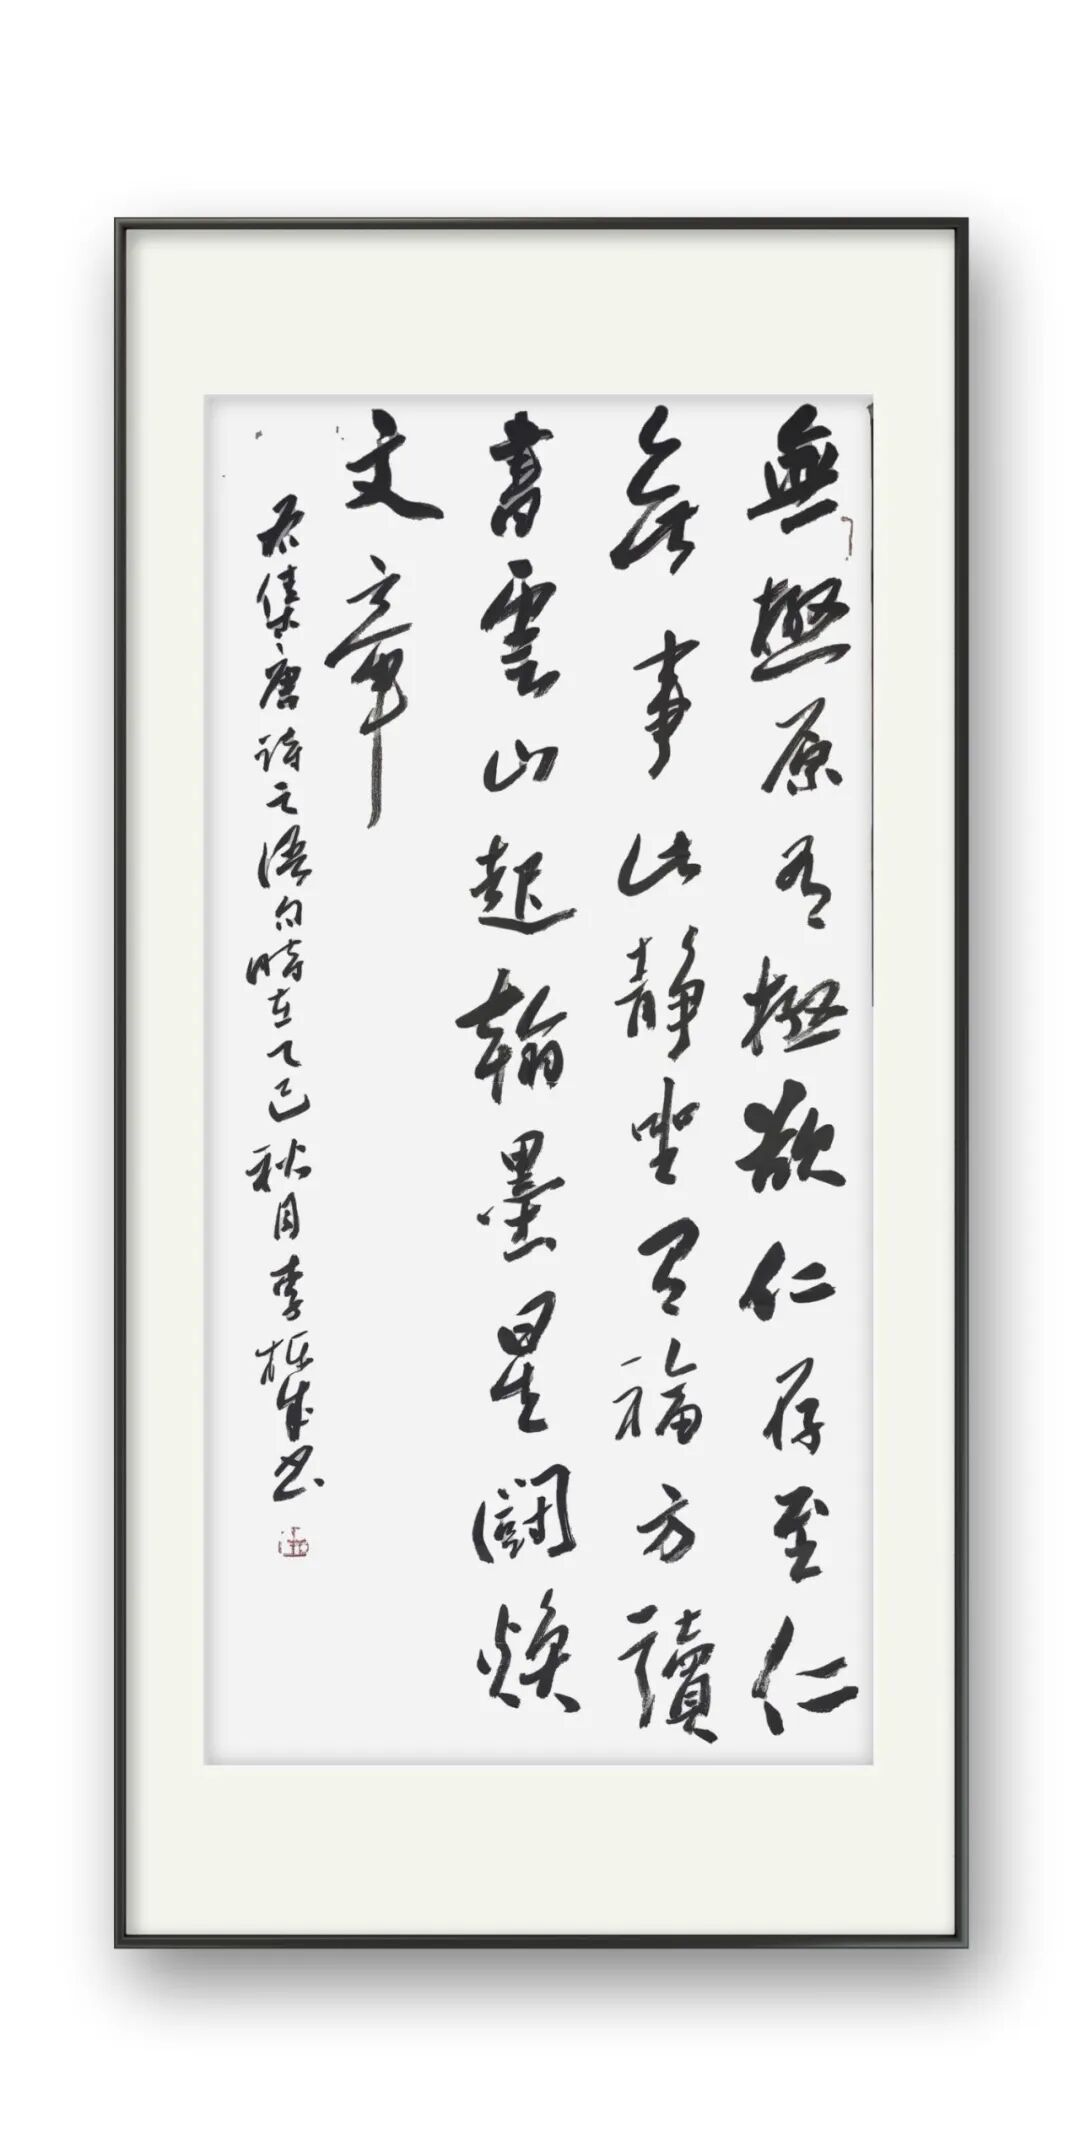 無極原有極欲仁存至仁
無事此靜坐有福方讀
書雲山起翰墨星闘煥
文章
集唐诗之语句時在乙巳秋月李成书